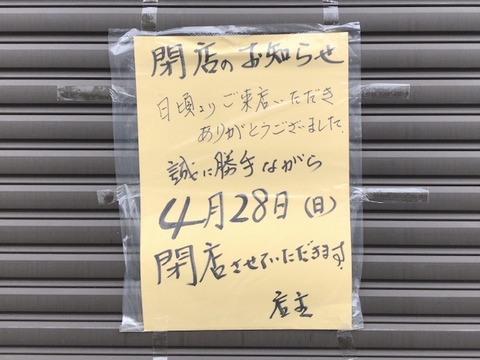 閉店のお知らせ
日頃よりご来店いただき
ありがとうございました
誠に勝手ながら
4月28日(日)
閉店させていただきます。
店主